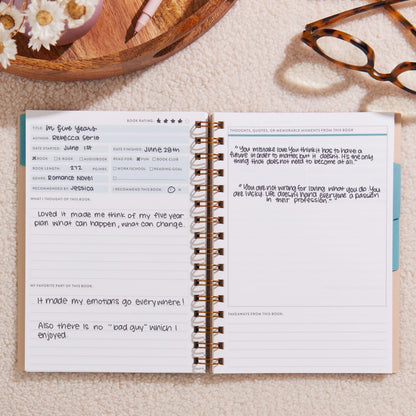 BOOK RATING:
TITLE: In Five Years
AUTHOR: Rebecca Serle
DATE STARTED: June 1st DATE FINISHED: June 28th
BOOK E-BOOK AUDIOBOOK READ FOR: FUN BOOK CLUB
BOOK LENGTH: 272 PAGES WORK/SCHOOL READING GOAL
GENRE: Romance Novel
RECOMMENDED BY: Jessica I RECOMMEND THIS BOOK: Y N
WHAT I THOUGHT OF THIS BOOK:
Loved it made me think of my five year
plan what can happen, what can change.
MY FAVORITE PART OF THIS BOOK:
It made my emotions go everywhere!
Also there is no "bad guy" which I
enjoyed.
THOUGHTS, QUOTES, OR MEMORABLE MOMENTS FROM THIS BOOK
"You mistake love. You think it has to have a
future in order to matter, but it doesn't. It's the only
thing that does not need to become at all."
"You are not wrong for loving what you do. You
are lucky. Life doesn't hand everyone a passion
in their profession"
TAKEAWAYS FROM THIS BOOK: